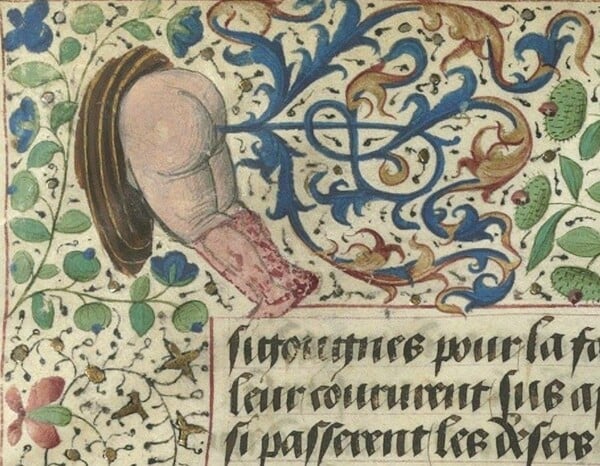 sigougnes pour la fa
leur coururent sus a
si passerent les desers